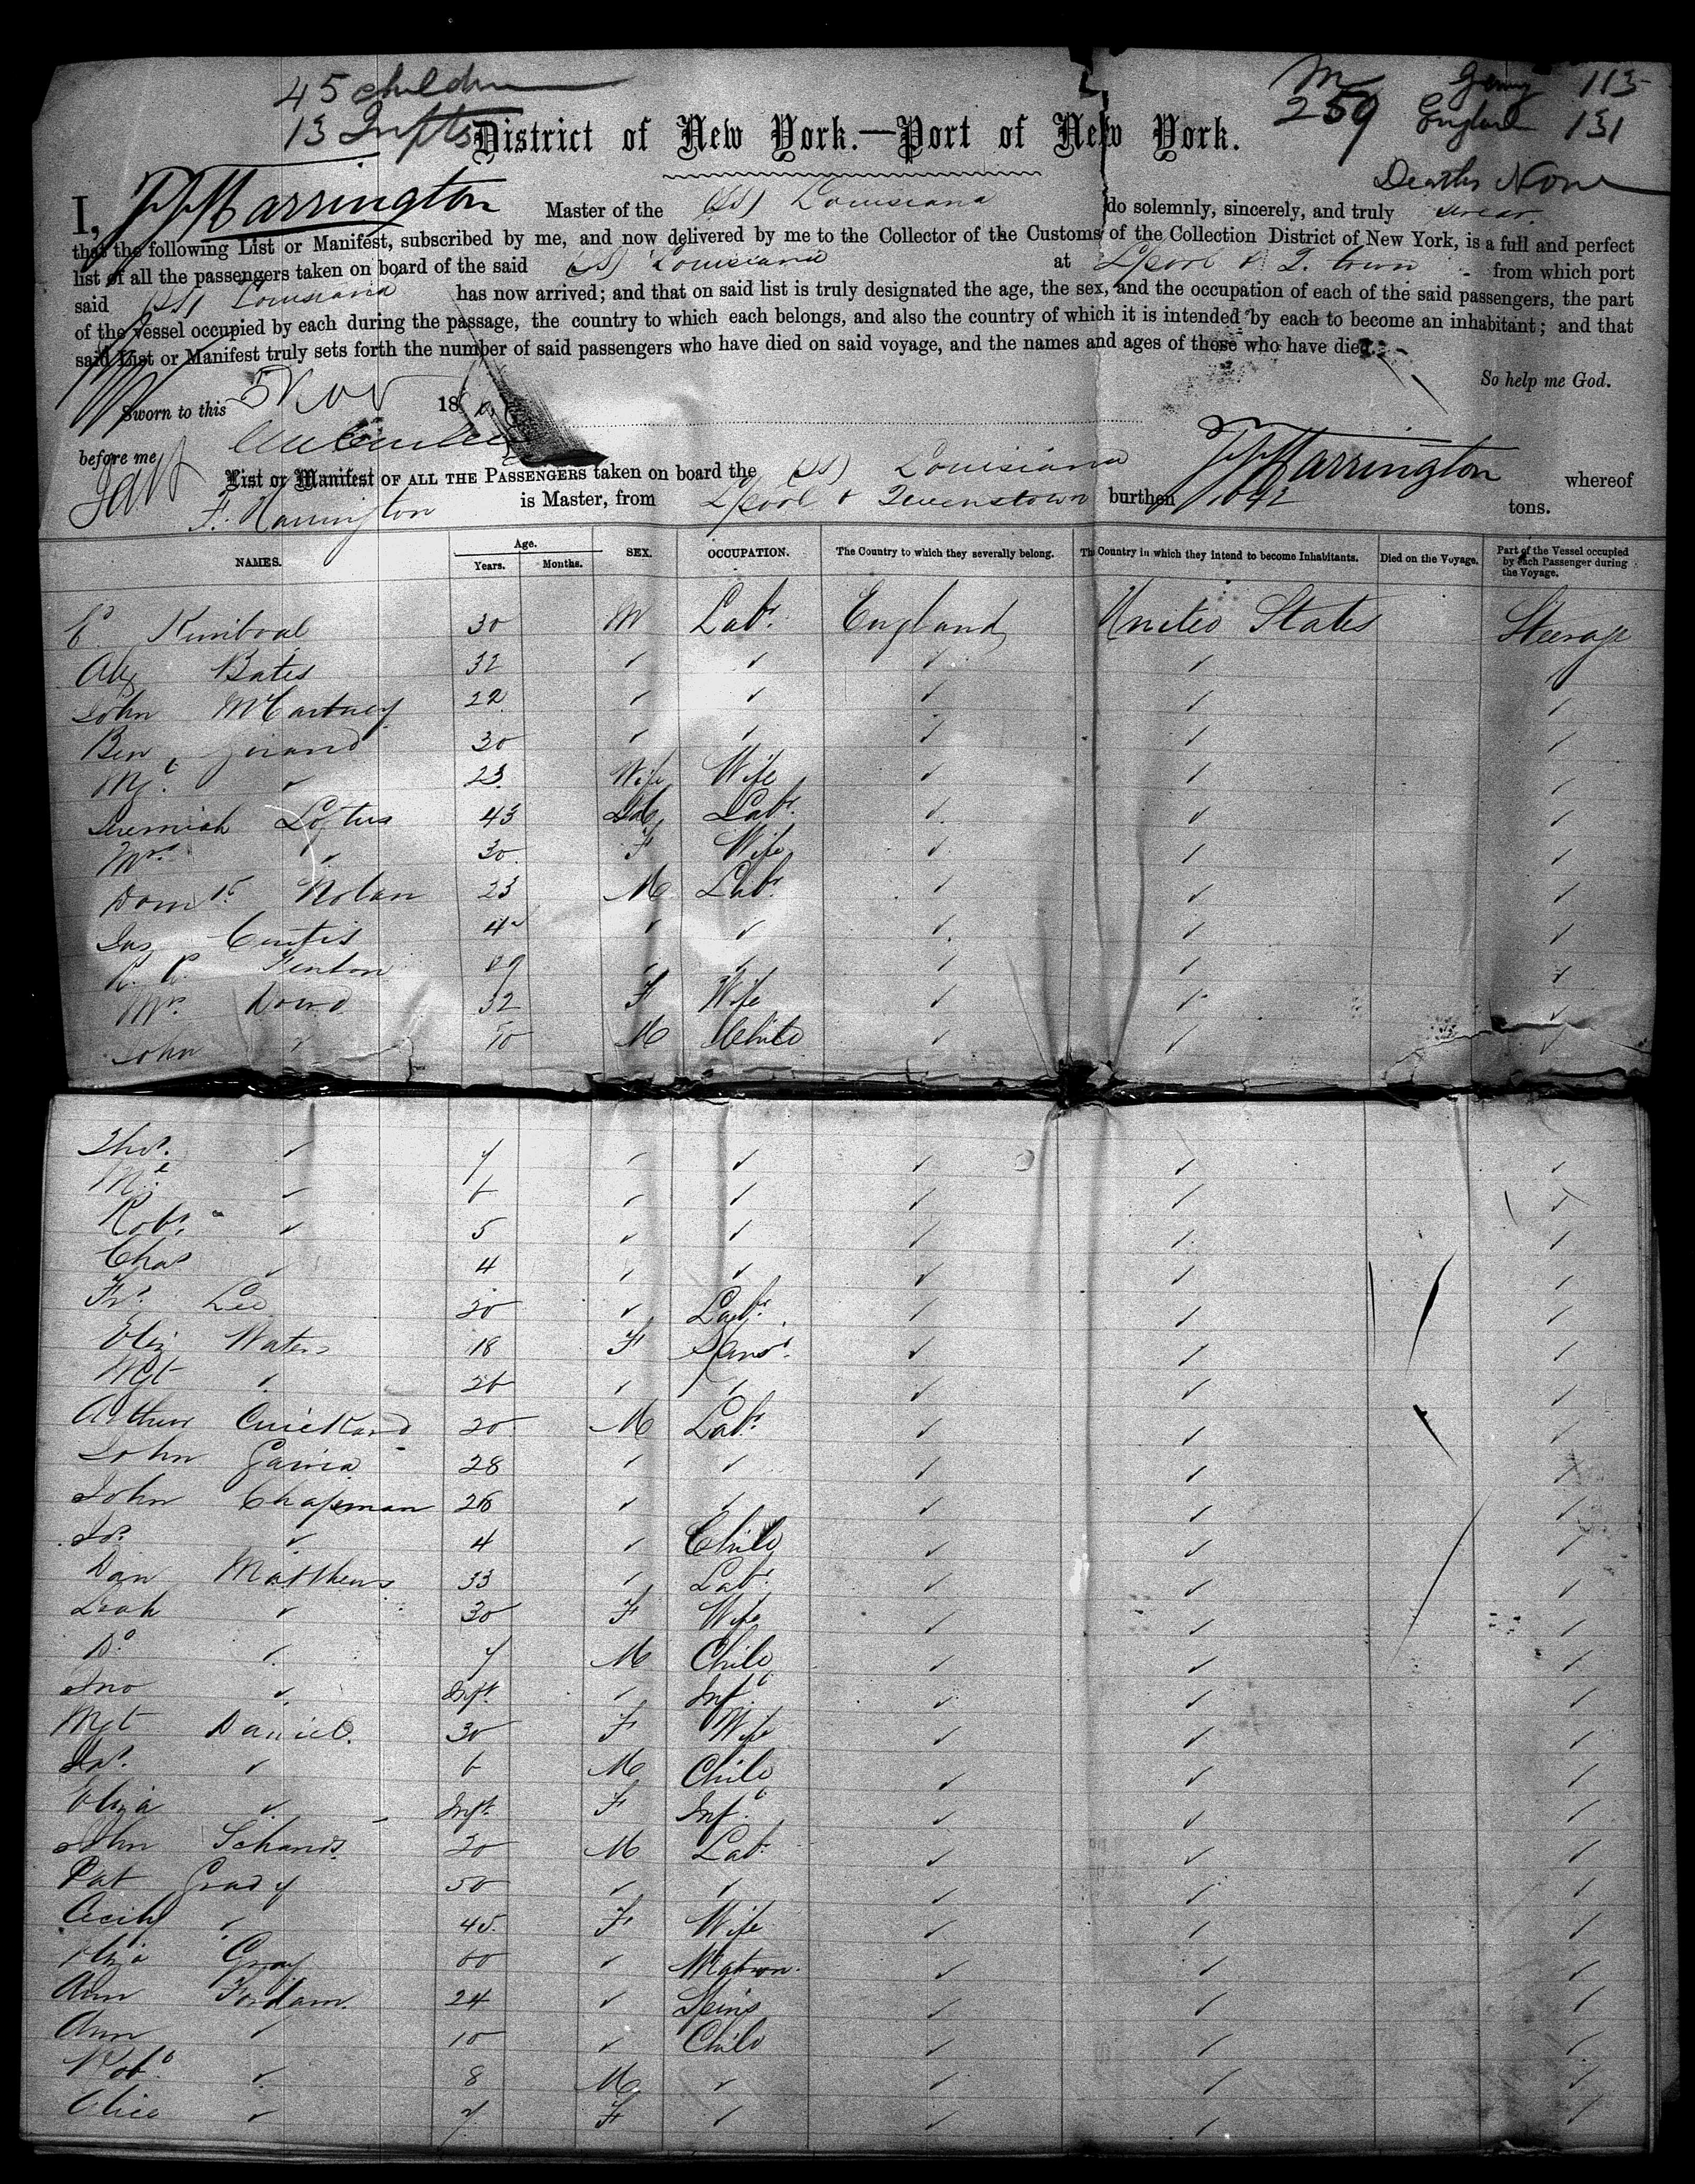 45 children
13 Infts
M
259
Germy 115
England 131
District of New York.—Port of New York.
Deaths None
I, Harrington Master of the (SS) Louisiana do solemnly, sincerely, and truly swear
that the following List or Manifest, subscribed by me, and now delivered by me to the Collector of the Customs of the Collection District of New York, is a full and perfect
list of all the passengers taken on board of the said (SS) Louisiana at L'pool & Q. town from which port
said (SS) Louisiana has now arrived; and that on said list is truly designated the age, the sex, and the occupation of each of the said passengers, the part
of the vessel occupied by each during the passage, the country to which each belongs, and also the country of which it is intended by each to become an inhabitant; and that
said List or Manifest truly sets forth the number of said passengers who have died on said voyage, and the names and ages of those who have died.
So help me God.
Sworn to this 5 Nov 18
before me
Harrington
List or Manifest OF ALL THE PASSENGERS taken on board the (SS) Louisiana whereof
F. Harrington is Master, from L'pool & Queenstown burthen 1642 tons.
NAMES. Age. Years. Months. SEX. OCCUPATION. The Country to which they severally belong. The Country in which they intend to become Inhabitants. Died on the Voyage. Part of the Vessel occupied by each Passenger during the Voyage.
30 M Labr. England United States Steerage
Alex Bates 32
John McCartney 22
Ben 30
Mgt. 23 Wife Wife
Jeremiah Loftus 43 Labr.
Mrs. 30 F Wife
Domk. Nolan 23 M Labr.
Jas Curtis
Fenton
Mrs. Dowd 32 F Wife
John 10 M Child
Thos. 7
6
Robt. 5
Chas 4
Frs. Lee 20 Labr.
Eliz Waters 18 F
Mgt 26
Arthur 20 M Labr.
John 28
John Chapman 28
Jos. 4 Child
Dan Matthews 33 Labr.
Leah 30 F Wife
Do. 7 M Child
Jno Inft. Inft.
Mgt Daniel 30 F Wife
Jas. 6 M Child
Eliza Inft. F Inft.
John 20 M Lab.
Pat Grady 50
Cecily 45 F Wife
Eliza Gray 60 Matron.
Ann Fordam. 24 Spins
Ann 10 Child
Robt. 8 M
Alice 7 F